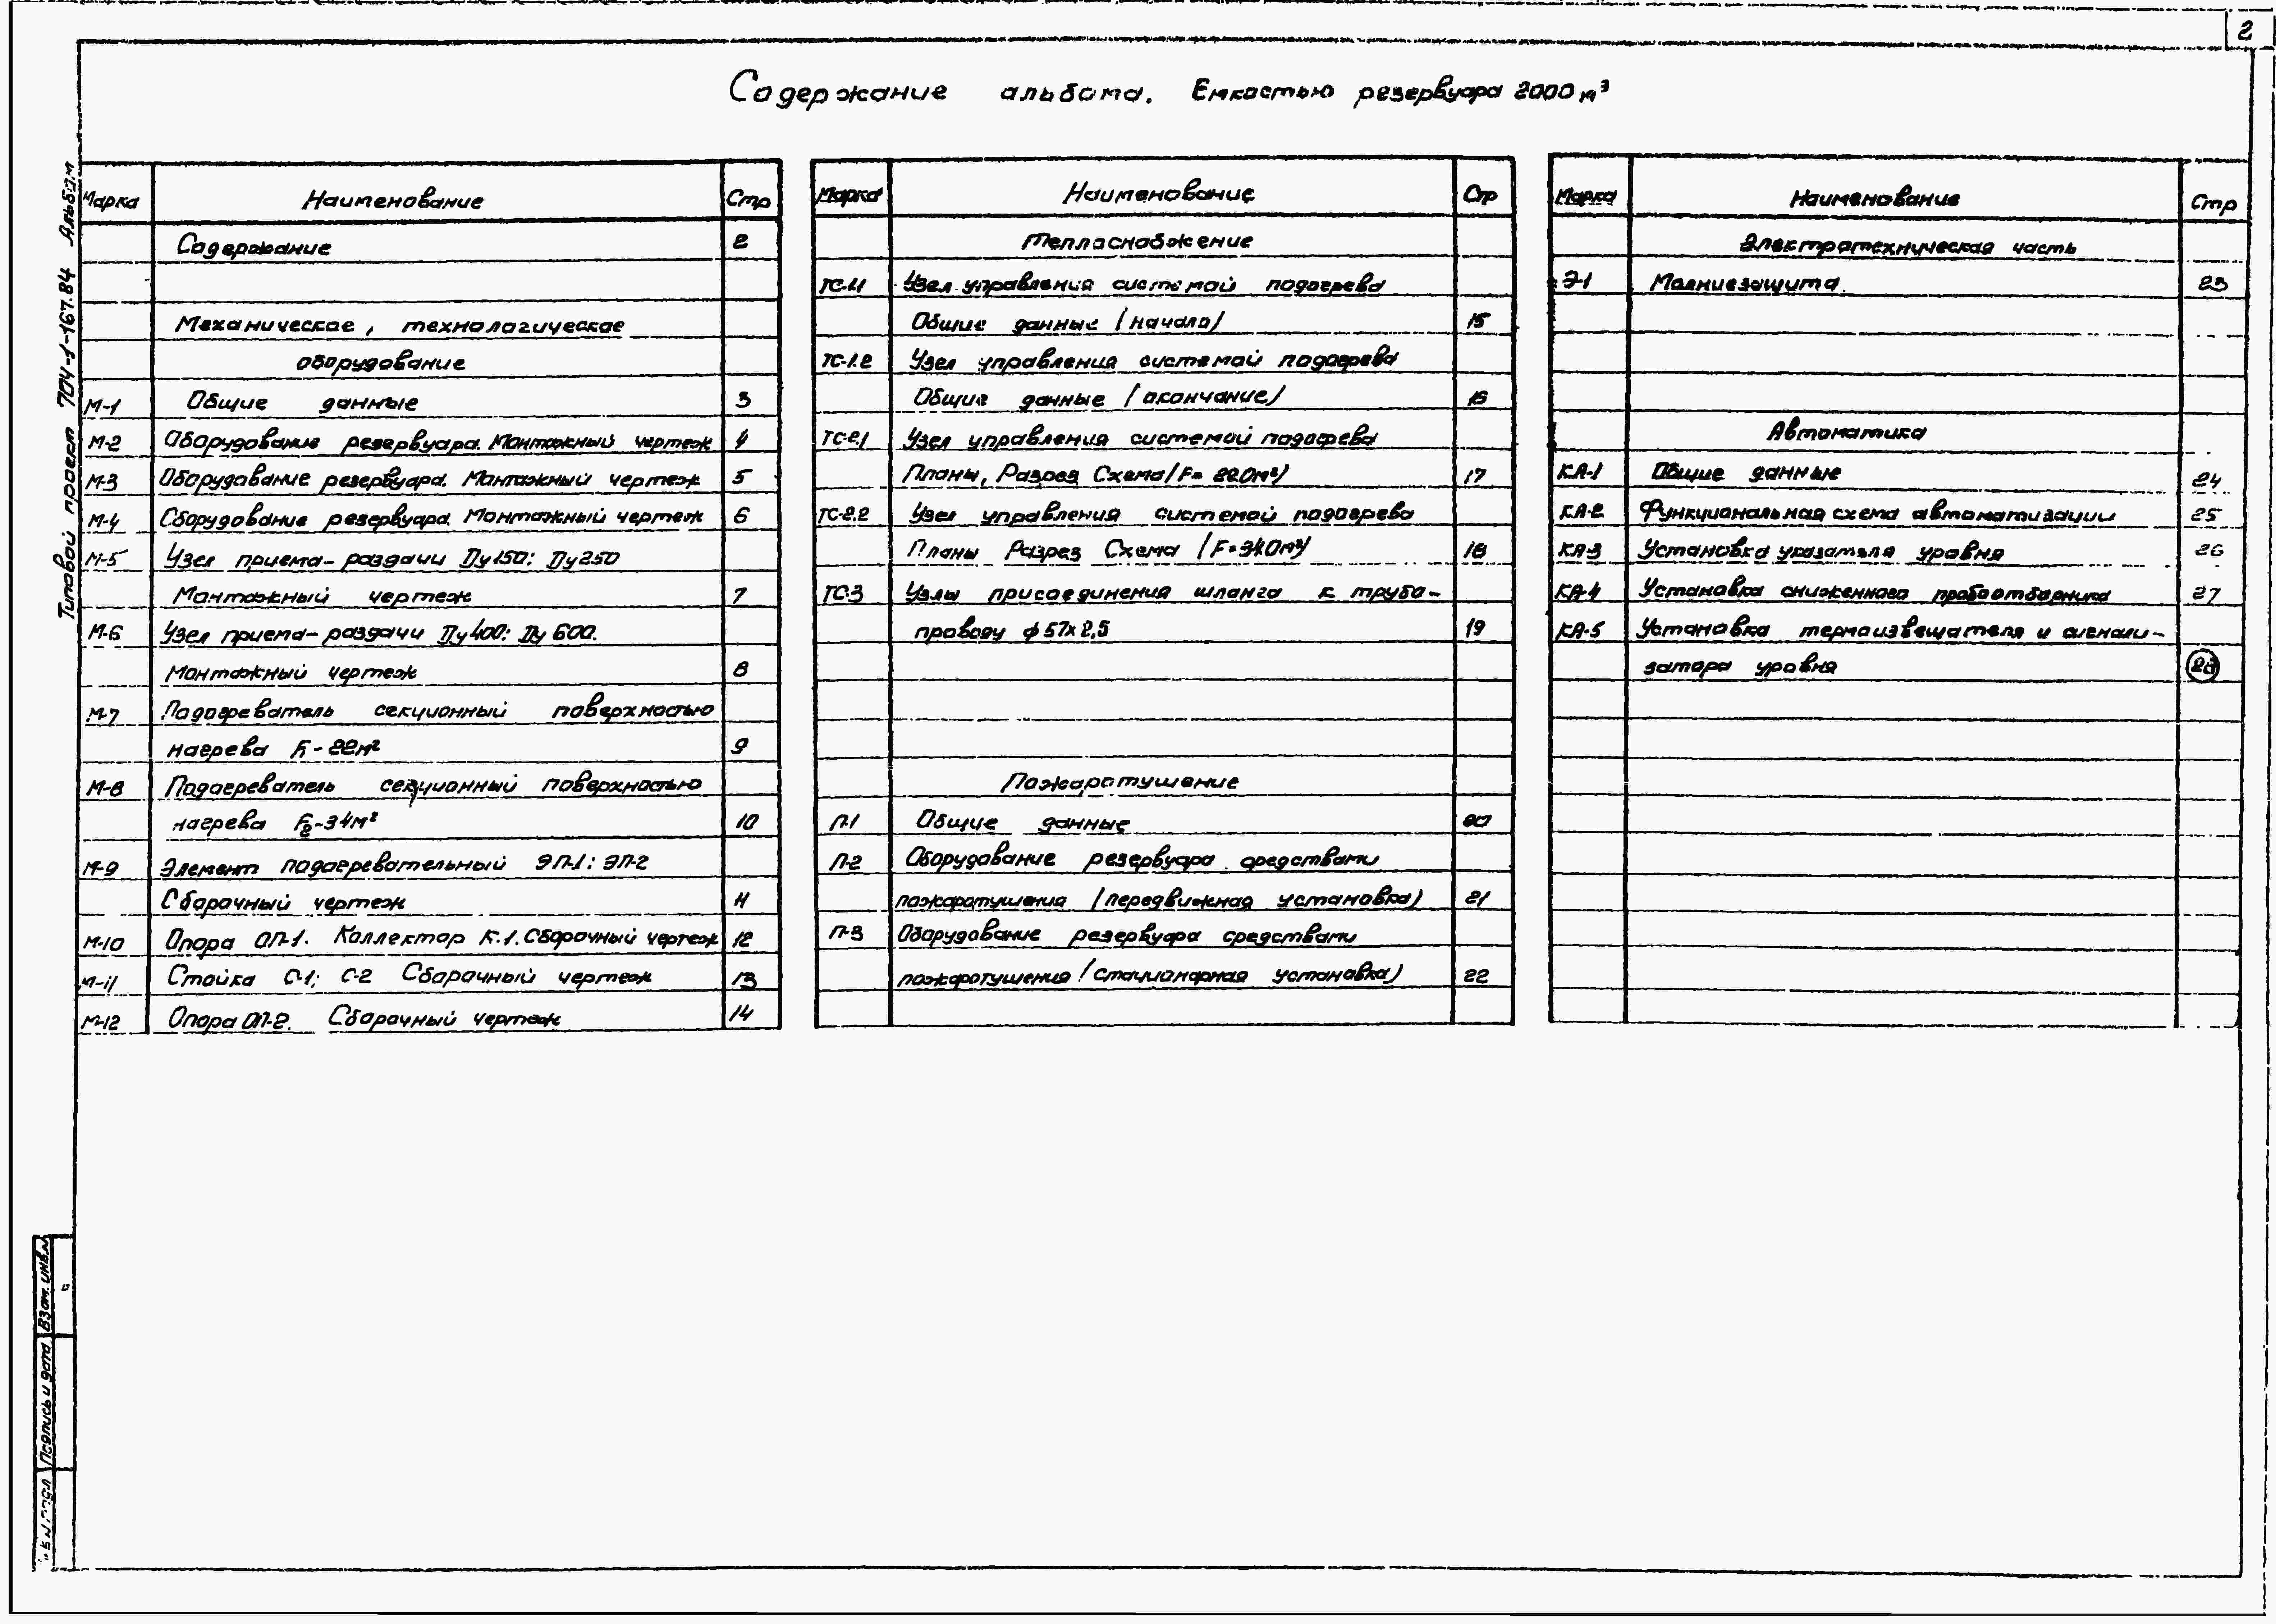 2
Содержание альбома. Емкостью резервуара 2000 м³
Типовой проект 704-1-167.84 Альбом
Марка Наименование Стр
Содержание 2
Механическое, технологическое
оборудование
М-1 Общие данные 3
М-2 Оборудование резервуара. Монтажный чертеж 4
М-3 Оборудование резервуара. Монтажный чертеж 5
М-4 Оборудование резервуара. Монтажный чертеж 6
М-5 Узел приема-раздачи Ду150: Ду250
Монтажный чертеж 7
М-6 Узел приема-раздачи Ду400: Ду 600.
Монтажный чертеж 8
М-7 Подогреватель секционный поверхностью
нагрева F₁-22м² 9
М-8 Подогреватель секционный поверхностью
нагрева F₂-34м² 10
М-9 Элемент подогревательный ЭП-1: ЭП-2
Сборочный чертеж 11
М-10 Опора ОП-1. Коллектор К.1. Сборочный чертеж 12
М-11 Стойка С-1; С-2 Сборочный чертеж 13
М-12 Опора ОП-2. Сборочный чертеж 14
Марка Наименование Стр
Теплоснабжение
ТС-1.1 Узел управления системой подогрева
Общие данные /начало/ 15
ТС-1.2 Узел управления системой подогрева
Общие данные /окончание/ 16
ТС-2.1 Узел управления системой подогрева
Планы, Разрез Схема /F= 220м²/ 17
ТС-2.2 Узел управления системой подогрева
Планы Разрез Схема /F=340м²/ 18
ТС-3 Узлы присоединения шланга к трубо-
проводу ф 57х2,5 19
Пожаротушение
П-1 Общие данные 20
П-2 Оборудование резервуара средствами
пожаротушения /передвижная установка) 21
П-3 Оборудование резервуара средствами
пожаротушения /стационарная установка) 22
Марка Наименование Стр
Электротехническая часть
Э-1 Молниезащита. 23
Автоматика
КА-1 Общие данные 24
КА-2 Функциональная схема автоматизации 25
КА-3 Установка указателя уровня 26
КА-4 Установка сниженного пробоотборника 27
КА-5 Установка термоизвещателя и сигнали-
затора уровня 28
Взам. инв. №
Подпись и дата